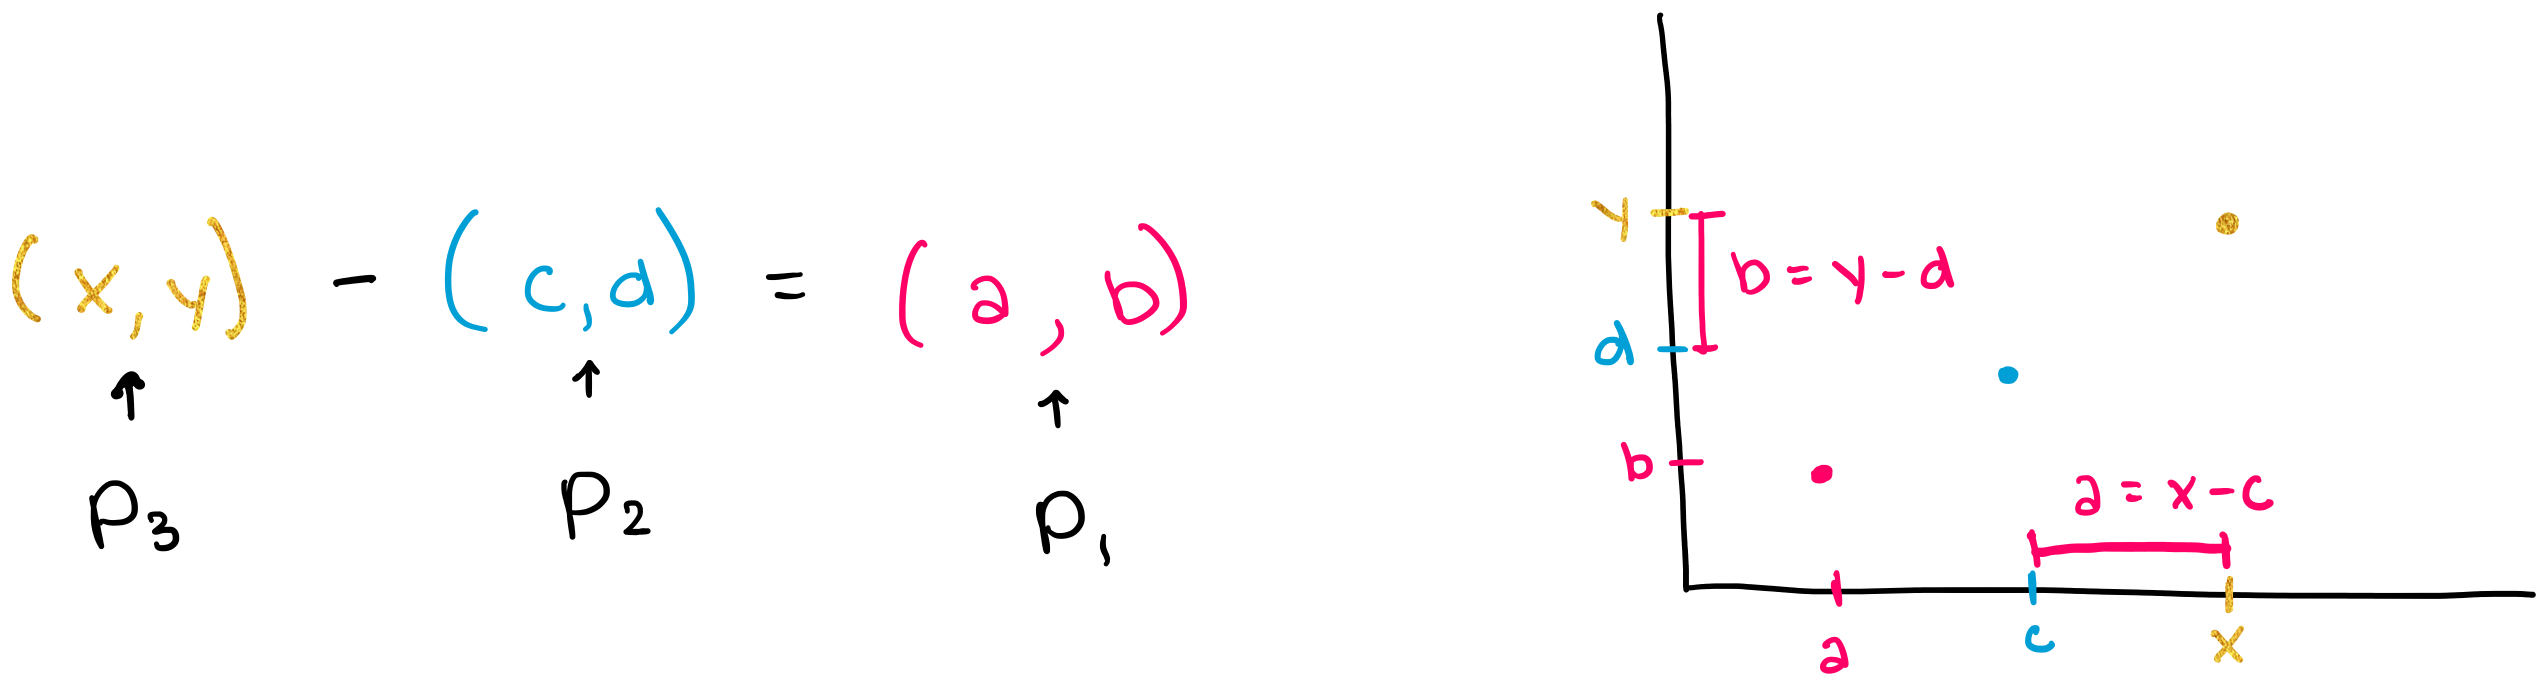 (x, y) - (c, d) = (a, b)
↑ ↑ ↑
P3 P2 P1
y
b = y - d
d
b
a = x - c
a c x